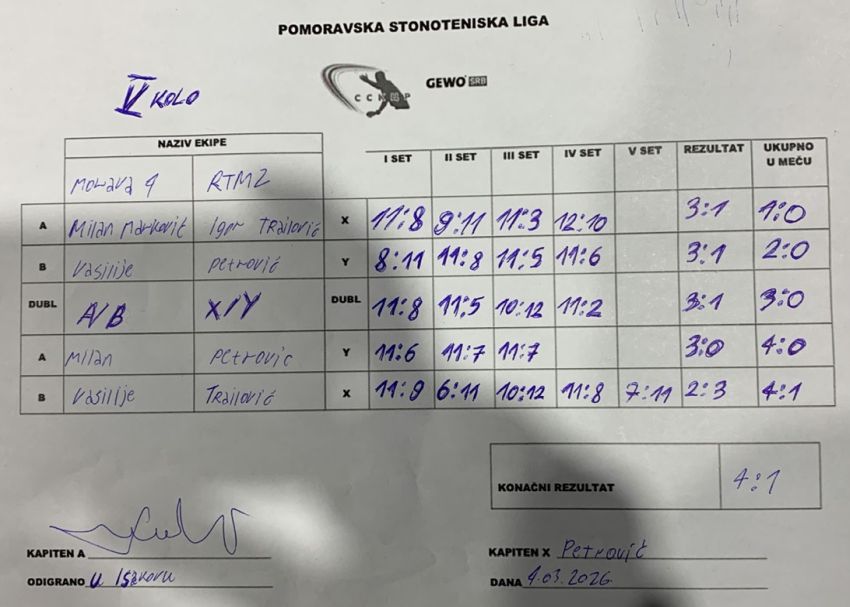 POMORAVSKA STONOTENISKA LIGA
V KOLO
CCKMP
GEWO SRB
NAZIV EKIPE I SET II SET III SET IV SET V SET REZULTAT UKUPNO U MEČU
Morava 1 RTM2
A Milan Marković Igor Trailović X 11:8 9:11 11:3 12:10 3:1 1:0
B Vasilije Petrović Y 8:11 11:8 11:5 11:6 3:1 2:0
DUBL A/B X/Y DUBL 11:8 11:5 10:12 11:2 3:1 3:0
A Milan Petrovic Y 11:6 11:7 11:7 3:0 4:0
B Vasilije Trailović X 11:9 6:11 10:12 11:8 7:11 2:3 4:1
KONAČNI REZULTAT 4:1
KAPITEN A KAPITEN X Petrović
ODIGRANO U Izvoru DANA 4.03.2026.